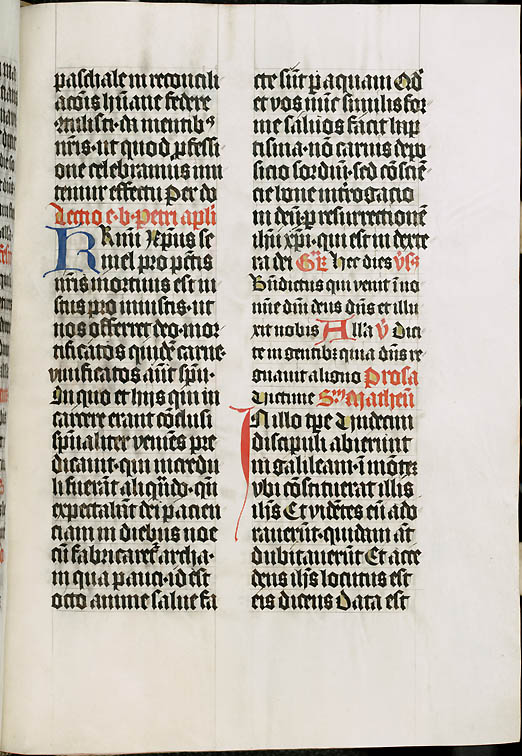 paschale in reconcili
acōis hūane federe
cōtulisti· da mentibꝰ
nr̄is· ut quod ꝓfessi
one celebramus imi
temur effectu Per do
Lectio e· b· petri apl̄i
KRmī Xp̄us se
mel pro pctīs
nr̄is mortuus est iu
stus pro iniustis· ut
nos offerret deo· mor
tificatos quidē carne·
viuificatos aūt sp̄u·
In quo et hijs qui in
carcere erant cōclusi
sp̄ualiter veniēs pre
dicauit· qui incredu
li fuerāt aliqn̄do· qn̄
expectabāt dei pacien
ciam in diebus noe
cū fabricaret̄ archa·
in qua pauci· id est
octo anime salue fa
cte sūt ꝑ aquam Qd̄
et vos nūc similis for
me saluos facit bap
tisma· nō carnis depo
sicio sordiū· sed cōsciē
cie bone int̄rogacio
in deū· ꝑ resurrectionē
ih̄u xp̄i· qui est in dexte
ra dei Gr̄ Hec dies v̄s
Bn̄dictus qui venit ī no
mine dn̄i deus dn̄s et illu
xit nobis Alla v̄ Dici
te in gentibꝫ quia dn̄s re
gnauit a ligno Prosa
Victime Sm̄ Matheū
In illo tp̄e Vndecim
discipuli abierunt
in galileam· ī mōtē
vbi cōstituerat illis
ih̄s Et vidētes eū ado
rauerūt· quidam āt
dubitauerūt Et acce
dens ih̄s locutus est
eis dicens Data est